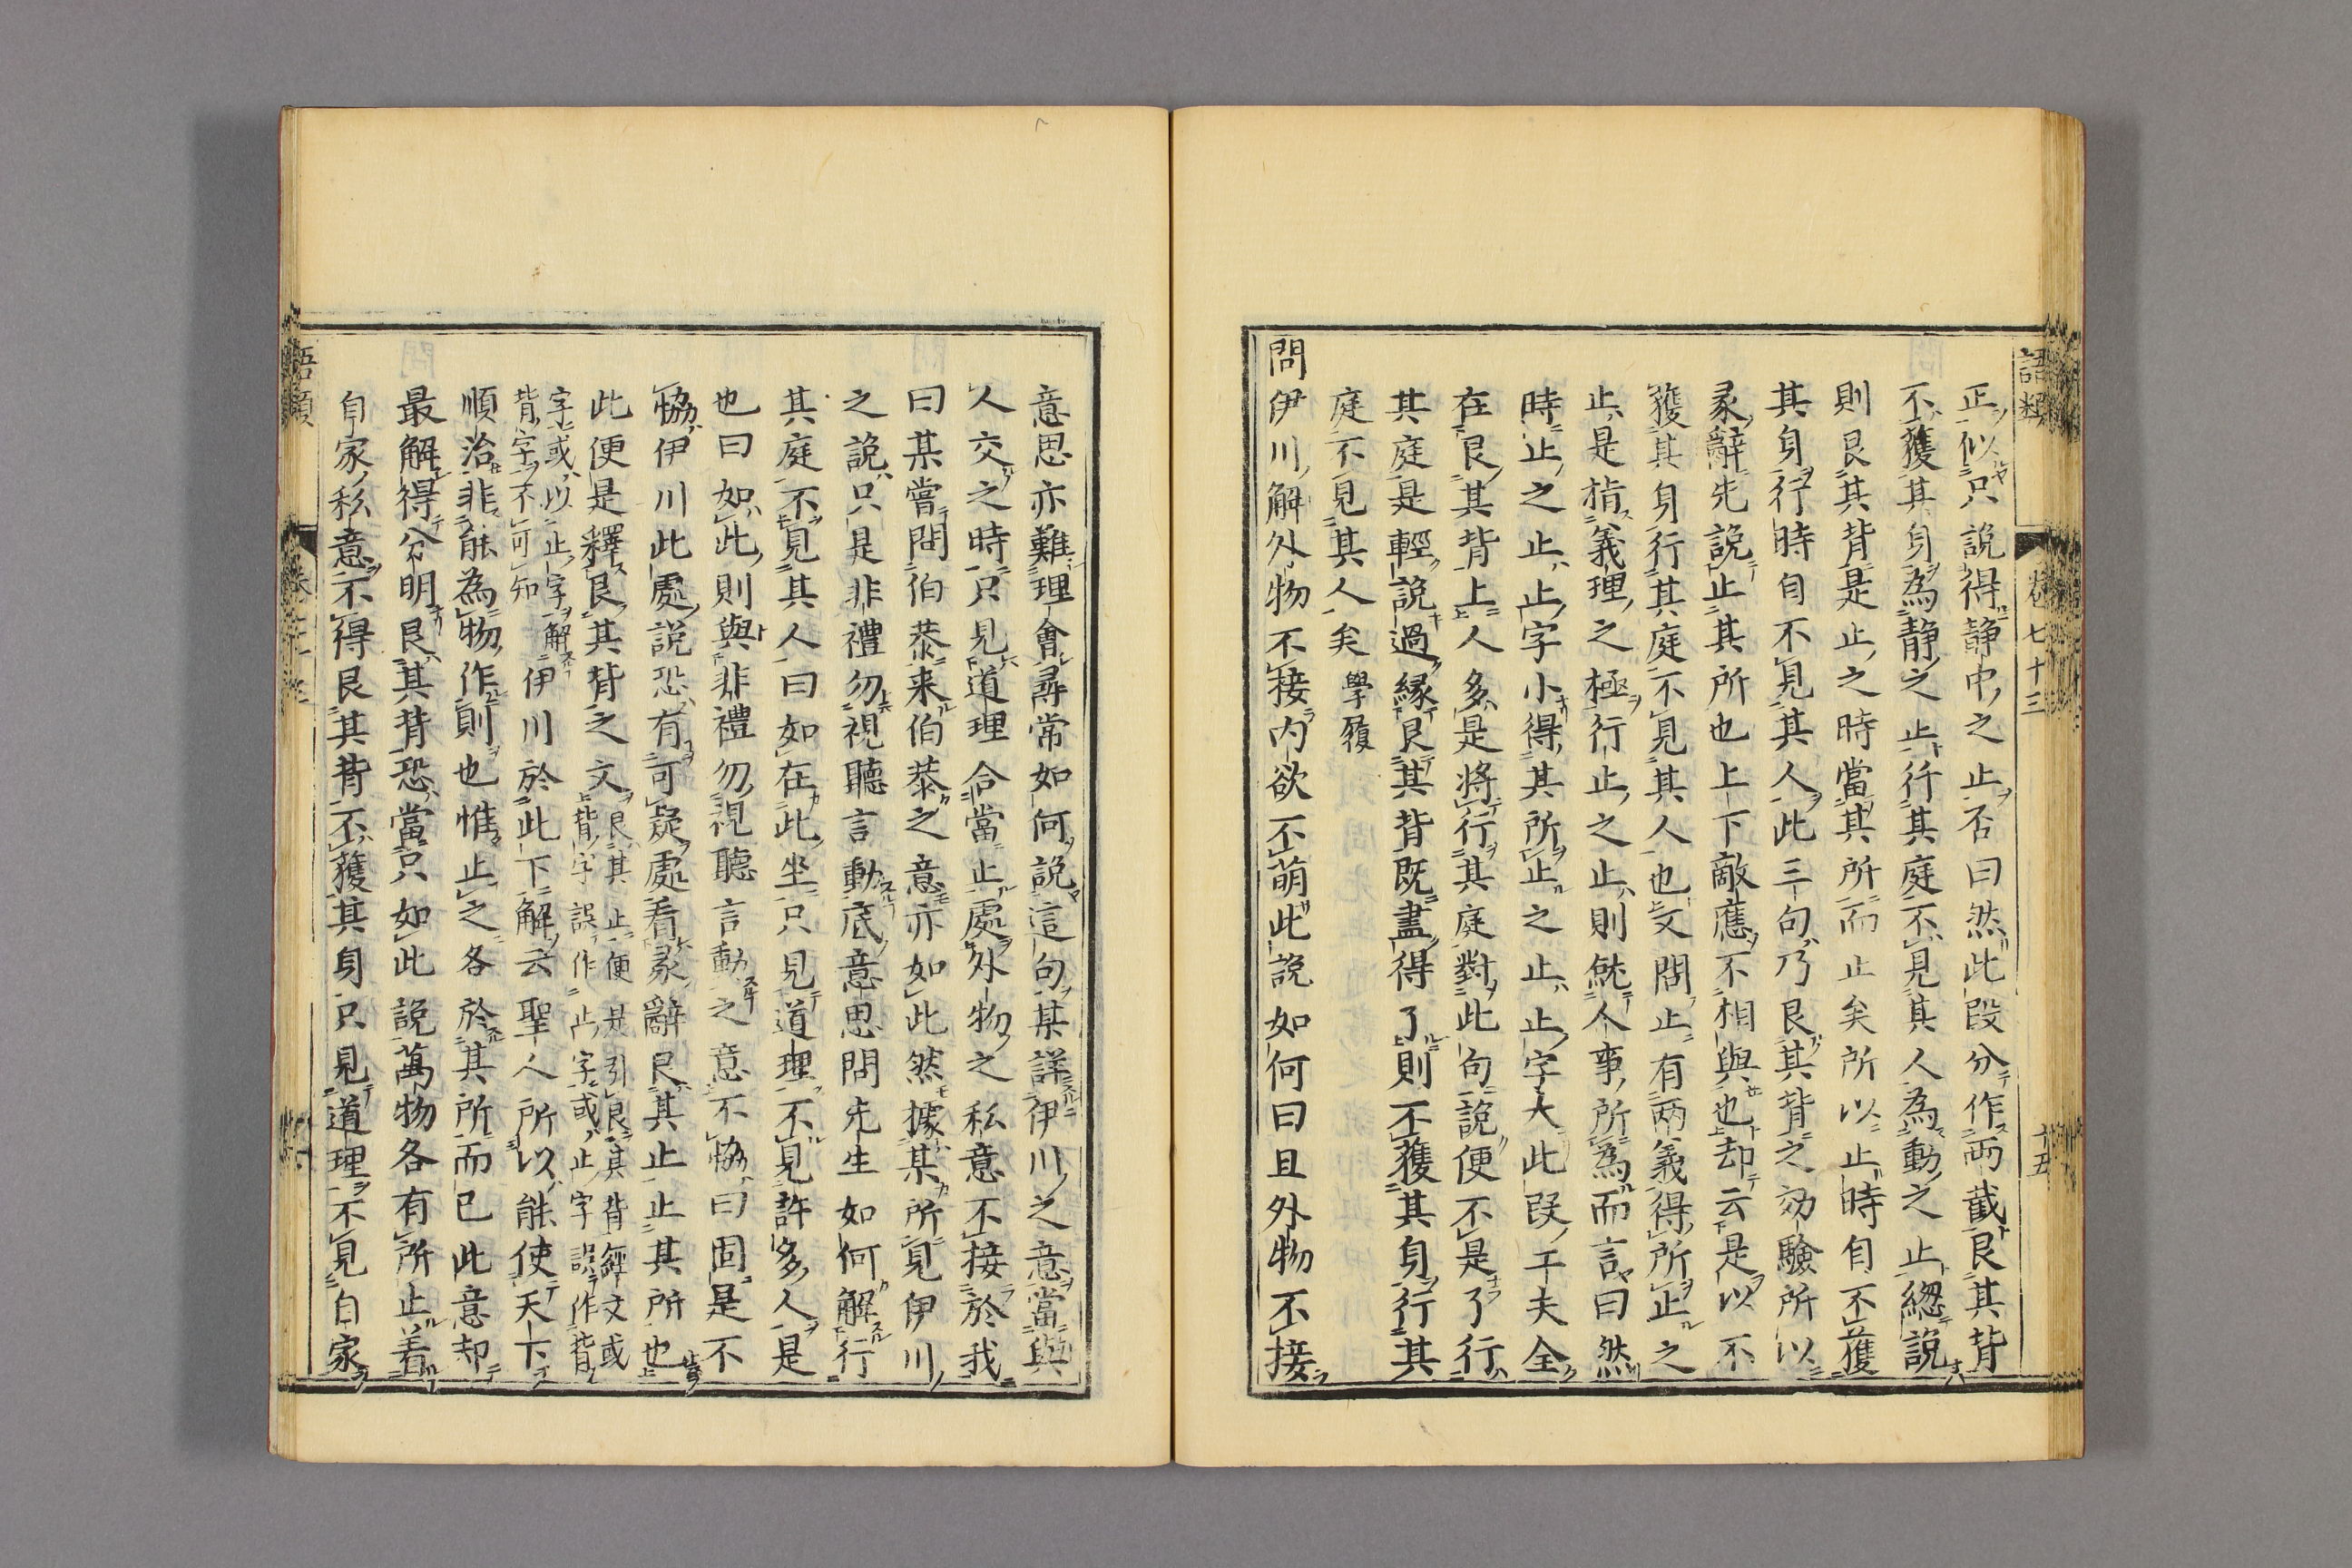 語類
卷七十三
十五
正似只說得静中之止否曰然此段分作両截艮其背
不獲其身為静之止行其庭不見其人為動之止緫說
則艮其背是止之時當其所而止矣所以止時自不獲
其身行時自不見其人此三句乃艮其背之効驗所以
彖辭先說止其所也上下敵應不相與也却云是以不
獲其身行其庭不見其人也又問止有両義得所止之
止是指義理之極行止之止則就人事所為而言曰然
時止之止止字小得其所止之止止字大此段工夫全
在艮其背上人多是将行其庭對此句說便不是了行
其庭是輕說過縁艮其背既盡得了則不獲其身行其
庭不見其人矣 學履
問伊川解外物不接内欲不萌此說如何曰且外物不接
意思亦難理會尋常如何說這句某詳伊川之意當與
人交之時只見道理合當止處外物之私意不接於我
曰某嘗問伯恭来伯恭之意亦如此然據某所見伊川
之說只是非禮勿視聽言動底意思問先生如何解行
其庭不見其人曰如在此坐只見道理不見許多人是
也曰如此則與非禮勿視聽言動之意不恊曰固是不
恊伊川此處說恐有可疑處看彖辭艮其止止其所也
此便是釋艮其背之文 艮其止便是引艮其背經文或
背字誤作止字或止字誤作背
字或以止字解
背字不可知 伊川於此下解云聖人所以能使天下
順治非能為物作則也惟止之各於其所而已此意却
最解得分明艮其背恐當只如此說萬物各有所止着
自家私意不得艮其背不獲其身只見道理不見自家
語類